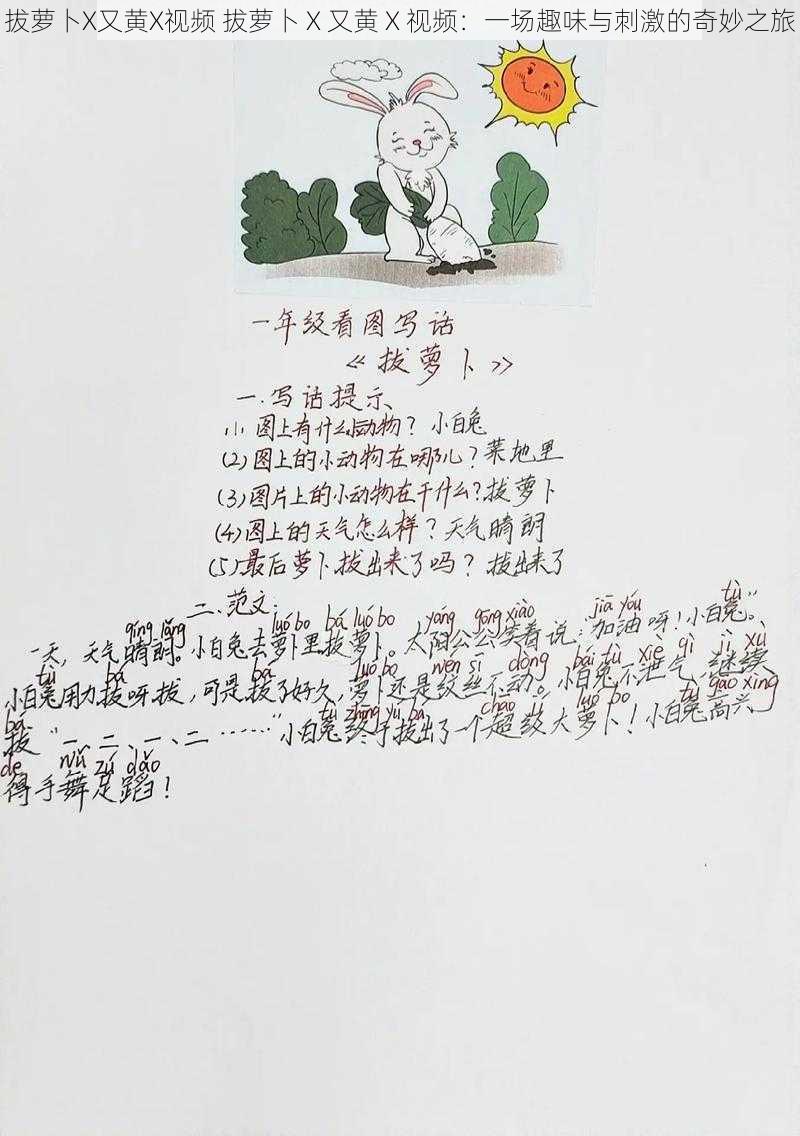 拔萝卜X又黄X视频 拔萝卜 X 又黄 X 视频：一场趣味与刺激的奇妙之旅
一年级看图写话
《拔萝卜》
一.写话提示
(1) 图上有什么小动物？ 小白兔
(2) 图上的小动物在哪儿？菜地里
(3) 图片上的小动物在干什么？拔萝卜
(4) 图上的天气怎么样？天气晴朗
(5) 最后萝卜拔出来了吗？ 拔出来了
二、范文：
qíng lǎng luó bo bá luó bo yáng gōng xiào jiā yóu tù
一天，天气晴朗。小白兔去萝卜里拔萝卜。太阳公公笑着说："加油呀！小白兔"。
tù bá bá luó bo wén sī dòng bái tù xiè qì jì xù
小白兔用力拔呀拔，可是拔了好久，萝卜还是纹丝不动。小白兔不泄气、继续
bá tù zhōng yú bá chāo jí luó bo tù gāo xìng
拔"一、二、一、二……"小白兔终于拔出了一个超级大萝卜！小白兔高兴
de wǔ zú dǎo
得手舞足蹈！